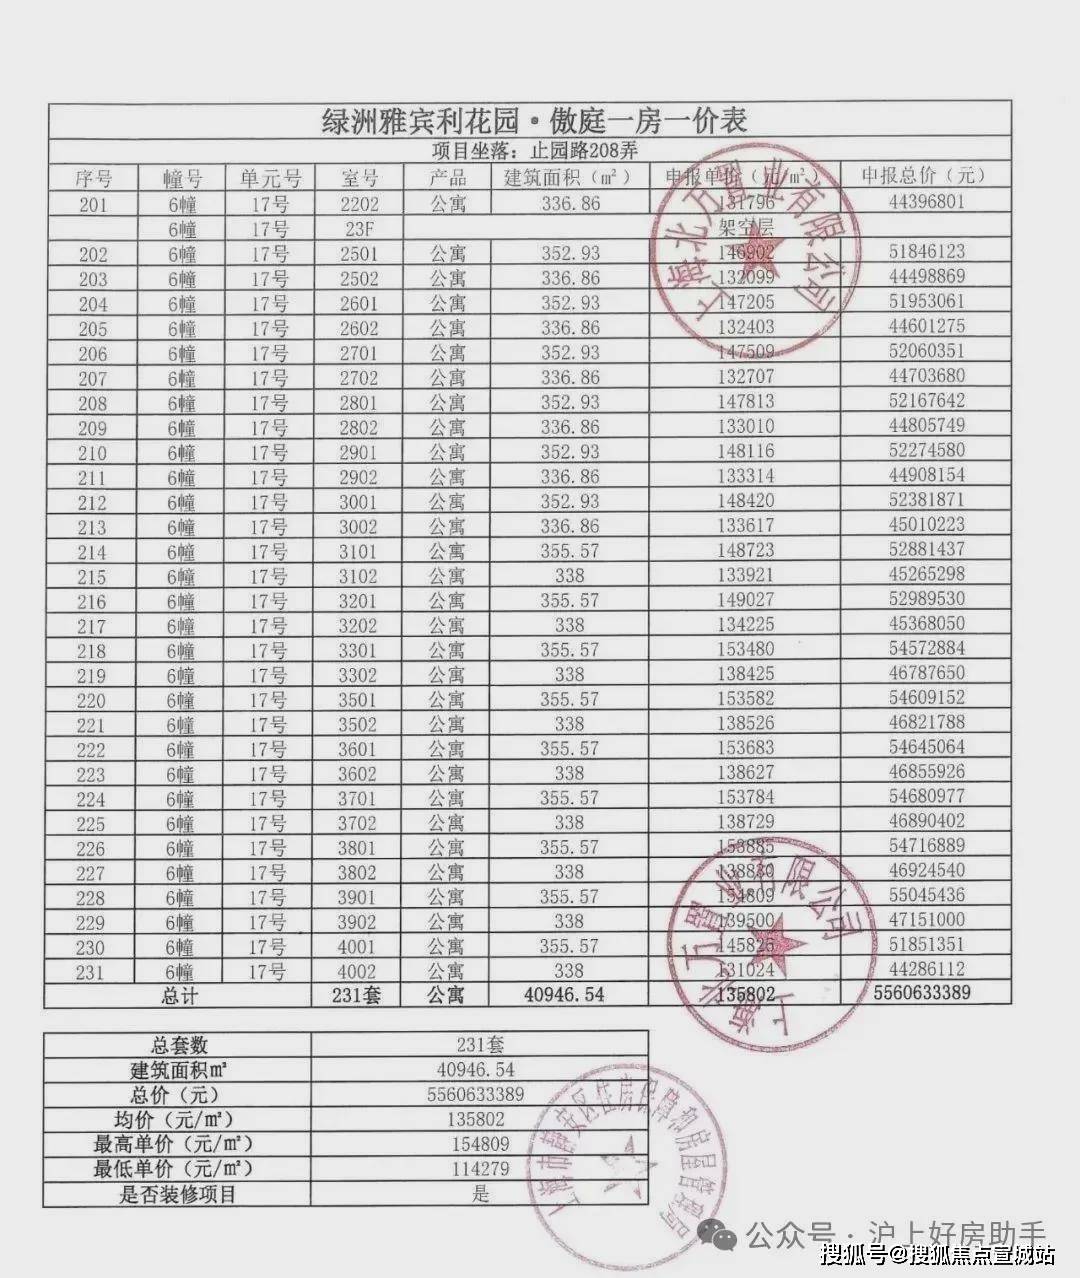 绿洲雅宾利花园·傲庭一房一价表
项目坐落：止园路208弄
序号 幢号 单元号 室号 产品 建筑面积（㎡） 申报单价（元/㎡） 申报总价（元）
201 6幢 17号 2202 公寓 336.86 131796 44396801
6幢 17号 23F 架空层
202 6幢 17号 2501 公寓 352.93 146902 51846123
203 6幢 17号 2502 公寓 336.86 132099 44498869
204 6幢 17号 2601 公寓 352.93 147205 51953061
205 6幢 17号 2602 公寓 336.86 132403 44601275
206 6幢 17号 2701 公寓 352.93 147509 52060351
207 6幢 17号 2702 公寓 336.86 132707 44703680
208 6幢 17号 2801 公寓 352.93 147813 52167642
209 6幢 17号 2802 公寓 336.86 133010 44805749
210 6幢 17号 2901 公寓 352.93 148116 52274580
211 6幢 17号 2902 公寓 336.86 133314 44908154
212 6幢 17号 3001 公寓 352.93 148420 52381871
213 6幢 17号 3002 公寓 336.86 133617 45010223
214 6幢 17号 3101 公寓 355.57 148723 52881437
215 6幢 17号 3102 公寓 338 133921 45265298
216 6幢 17号 3201 公寓 355.57 149027 52989530
217 6幢 17号 3202 公寓 338 134225 45368050
218 6幢 17号 3301 公寓 355.57 153480 54572884
219 6幢 17号 3302 公寓 338 138425 46787650
220 6幢 17号 3501 公寓 355.57 153582 54609152
221 6幢 17号 3502 公寓 338 138526 46821788
222 6幢 17号 3601 公寓 355.57 153683 54645064
223 6幢 17号 3602 公寓 338 138627 46855926
224 6幢 17号 3701 公寓 355.57 153784 54680977
225 6幢 17号 3702 公寓 338 138729 46890402
226 6幢 17号 3801 公寓 355.57 153885 54716889
227 6幢 17号 3802 公寓 338 138830 46924540
228 6幢 17号 3901 公寓 355.57 154809 55045436
229 6幢 17号 3902 公寓 338 139500 47151000
230 6幢 17号 4001 公寓 355.57 145826 51851351
231 6幢 17号 4002 公寓 338 131024 44286112
总计 231套 公寓 40946.54 135802 5560633389
上海北万置业有限公司
上海北万置业有限公司
总套数 231套
建筑面积㎡ 40946.54
总价（元） 5560633389
均价（元/㎡） 135802
最高单价（元/㎡） 154809
最低单价（元/㎡） 114279
是否装修项目 是
上海市静安区住房保障和房屋管理局
公众号·沪上好房助手
搜狐号@搜狐焦点宣城站